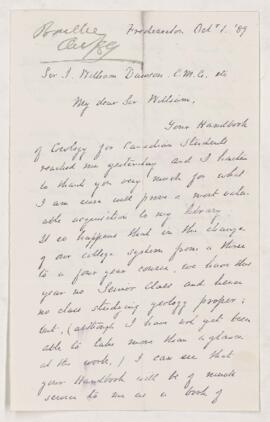 Bailey
Oct/89
Fredericton Oct 1. '89
Sir J. William Dawson, C.M.G. etc
My dear Sir William,
Your Handbook
of Geology for Canadian Students
reached me yesterday and I hasten
to thank you very much for what
I am sure will prove a most valu-
able acquisition to my library.
It so happens that in the change
of our college system from a three
to a four year course, we have this
year no Senior Class and hence
no class studying geology proper;
but, (although I have not yet been
able to take more than a glance
at the work,) I can see that
your Handbook will be of much
service to me as a book of